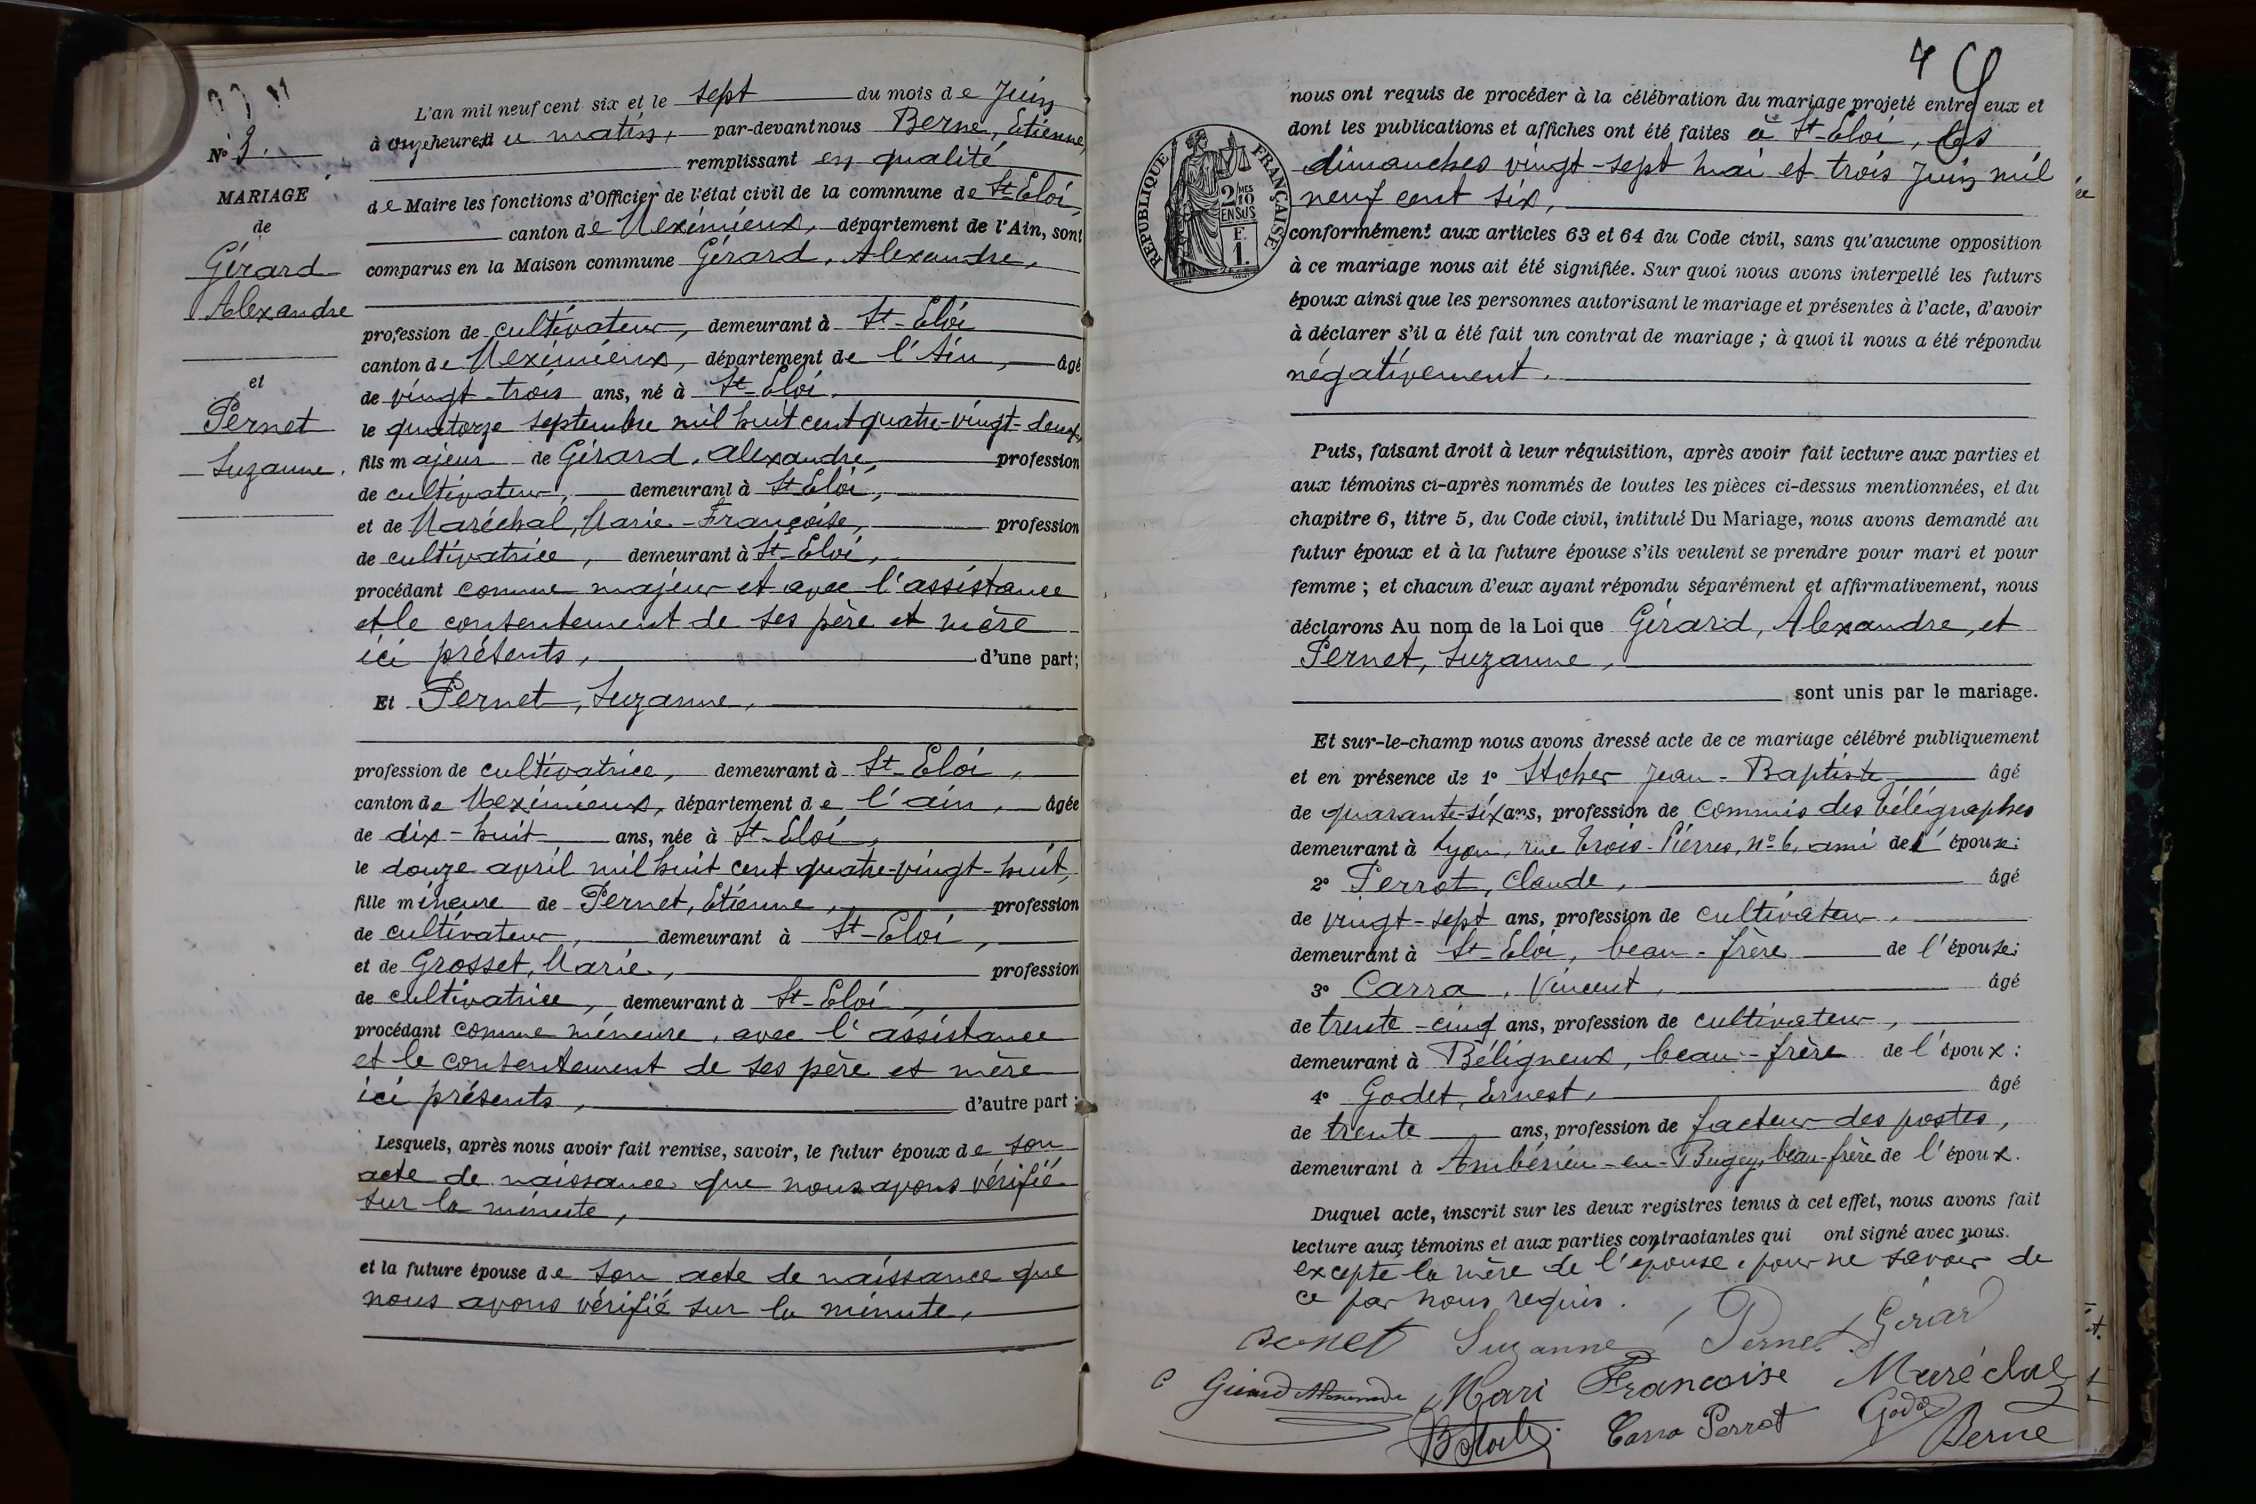 L'an mil neuf cent six et le sept du mois de Juin
à onze heures du matin, par-devant nous Berne, Etienne,
remplissant en qualité
de Maire les fonctions d'Officier de l'état civil de la commune de St-Eloi,
canton de Meximieux, département de l'Ain, sont
comparus en la Maison commune Gérard, Alexandre,
profession de cultivateur, demeurant à St-Eloi
canton de Meximieux, département de l'Ain, âgé
de vingt-trois ans, né à St-Eloi
le quatorze septembre mil huit cent quatre-vingt-deux,
fils majeur de Gérard, alexandre, profession
de cultivateur, demeurant à St-Eloi,
et de Maréchal, Marie-Françoise, profession
de cultivatrice, demeurant à St-Eloi,
procédant comme majeur et avec l'assistance
et le consentement de ses père et mère
ici présents, d'une part;
Et Pernet, Suzanne,
profession de cultivatrice, demeurant à St-Eloi,
canton de Meximieux, département de l'ain, âgée
de dix-huit ans, née à St-Eloi,
le douze avril mil huit cent quatre-vingt-huit,
fille mineure de Pernet, Etienne, profession
de cultivateur, demeurant à St-Eloi,
et de Grosset, Marie, profession
de cultivatrice, demeurant à St-Eloi
procédant comme mineure, avec l'assistance
et le consentement de ses père et mère
ici présents, d'autre part;
Lesquels, après nous avoir fait remise, savoir, le futur époux de son
acte de naissance que nous avons vérifié
sur la minute,
et la future épouse de son acte de naissance que
nous avons vérifié sur la minute,
No 3.
MARIAGE
de
Gérard
Alexandre
et
Pernet
Suzanne.
4
nous ont requis de procéder à la célébration du mariage projeté entre eux et
dont les publications et affiches ont été faites à St-Eloi, les
dimanches vingt-sept mai et trois Juin mil
neuf cent six,
conformément aux articles 63 et 64 du Code civil, sans qu'aucune opposition
à ce mariage nous ait été signifiée. Sur quoi nous avons interpellé les futurs
époux ainsi que les personnes autorisant le mariage et présentes à l'acte, d'avoir
à déclarer s'il a été fait un contrat de mariage; à quoi il nous a été répondu
négativement.
Puis, faisant droit à leur réquisition, après avoir fait lecture aux parties et
aux témoins ci-après nommés de toutes les pièces ci-dessus mentionnées, et du
chapitre 6, titre 5, du Code civil, intitulé Du Mariage, nous avons demandé au
futur époux et à la future épouse s'ils veulent se prendre pour mari et pour
femme; et chacun d'eux ayant répondu séparément et affirmativement, nous
déclarons Au nom de la Loi que Gérard, Alexandre, et
Pernet, Suzanne,
sont unis par le mariage.
Et sur-le-champ nous avons dressé acte de ce mariage célébré publiquement
et en présence de 1° Jean-Baptiste, âgé
de quarante-six ans, profession de commis des télégraphes
demeurant à Lyon, rue Trois-Pierres, no 6, ami de l'épouse;
2° Perrot, Claude, âgé
de vingt-sept ans, profession de cultivateur,
demeurant à St-Eloi, beau-frère de l'épouse;
3° Carra, Vincent, âgé
de trente-cinq ans, profession de cultivateur,
demeurant à Béligneux, beau-frère de l'époux:
4° Godet, Ernest, âgé
de trente ans, profession de facteur des postes,
demeurant à Ambérieu-en-Bugey, beau-frère de l'époux.
Duquel acte, inscrit sur les deux registres tenus à cet effet, nous avons fait
lecture aux témoins et aux parties contractantes qui ont signé avec nous.
excepté la mère de l'épouse, pour ne savoir de
ce par nous requis.
Pernet Suzanne Pernet Gérard
Gérard Alexandre Mari Francoise Maréchal
Carra Perrot Godet Berne
RÉPUBLIQUE FRANÇAISE
2 MES
10
EN SUS
F.
1.